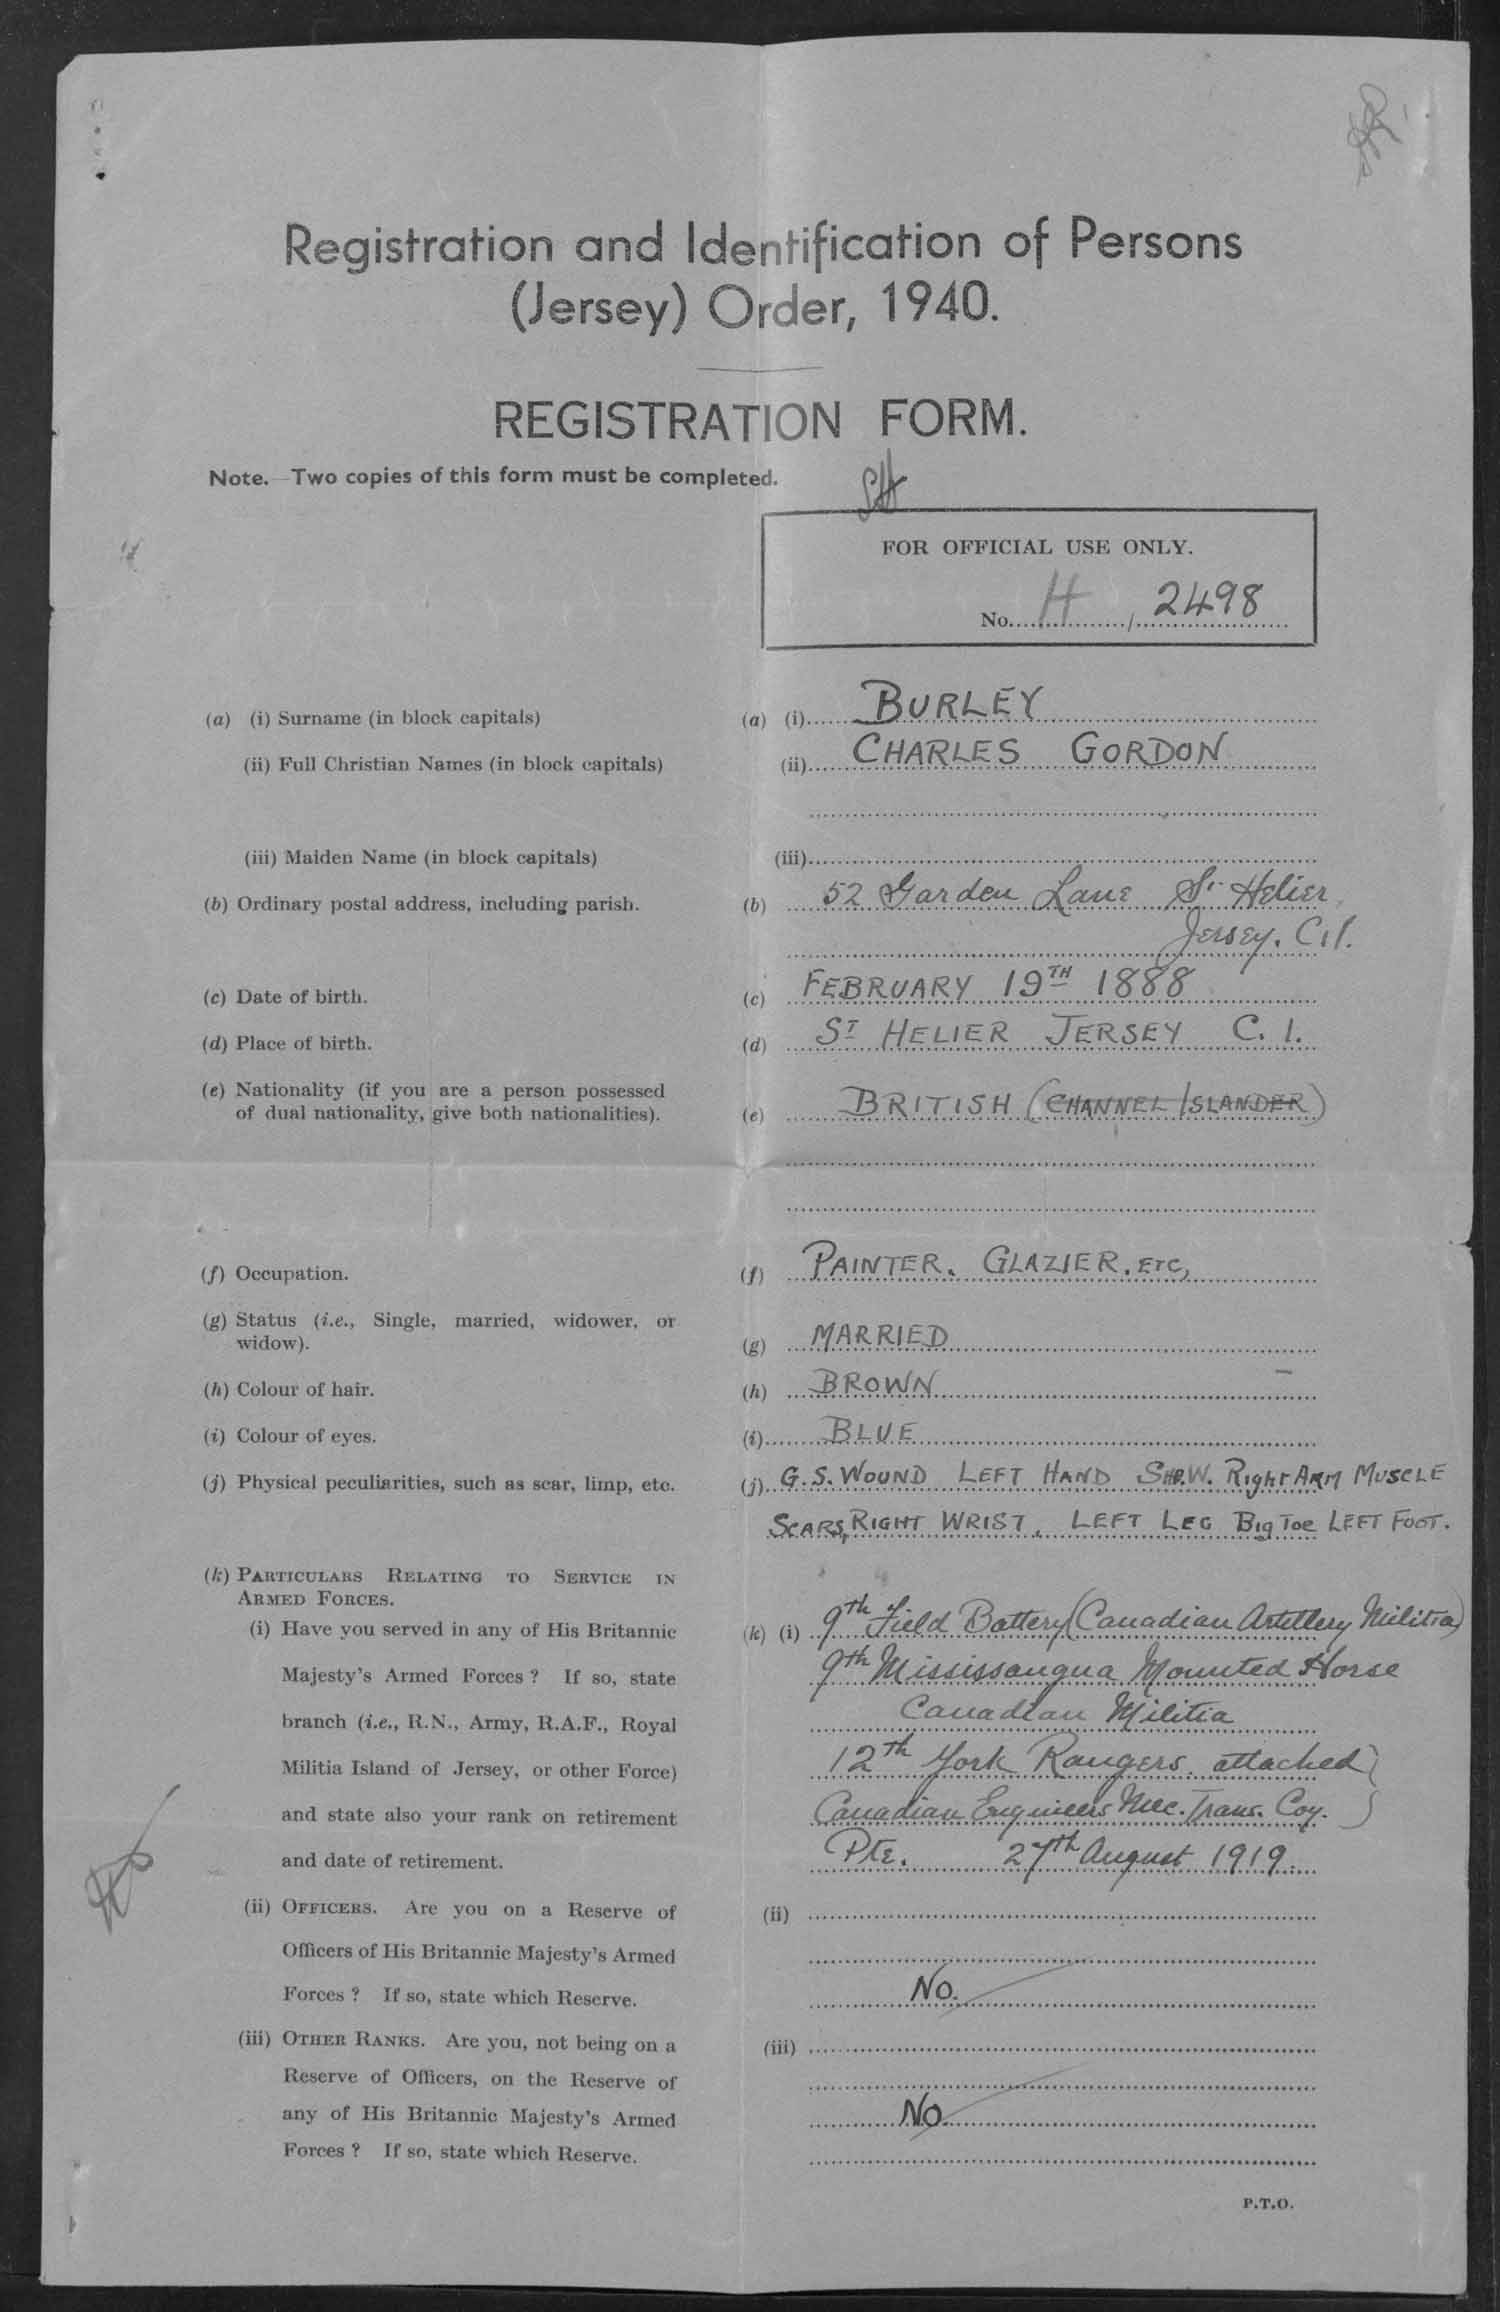 Registration and Identification of Persons
(Jersey) Order, 1940.
REGISTRATION FORM.
Note.—Two copies of this form must be completed.
FOR OFFICIAL USE ONLY.
No. H / 2498
(a) (i) Surname (in block capitals) (a) (i) BURLEY
(ii) Full Christian Names (in block capitals) (ii) CHARLES GORDON
(iii) Maiden Name (in block capitals) (iii)
(b) Ordinary postal address, including parish. (b) 52 Garden Lane St Helier
Jersey. C.I.
(c) Date of birth. (c) FEBRUARY 19TH 1888
(d) Place of birth. (d) ST HELIER JERSEY C. I.
(e) Nationality (if you are a person possessed
of dual nationality, give both nationalities). (e) BRITISH (CHANNEL ISLANDER)
(f) Occupation. (f) PAINTER. GLAZIER. ETC,
(g) Status (i.e., Single, married, widower, or
widow). (g) MARRIED
(h) Colour of hair. (h) BROWN
(i) Colour of eyes. (i) BLUE
(j) Physical peculiarities, such as scar, limp, etc. (j) G.S. WOUND LEFT HAND W. Right ARM MUSCLE
SCARS, RIGHT WRIST, LEFT LEG Big Toe LEFT FOOT.
(k) PARTICULARS RELATING TO SERVICE IN
ARMED FORCES.
(i) Have you served in any of His Britannic (k) (i) 9th Field Battery (Canadian Artillery Militia)
Majesty's Armed Forces ? If so, state 9th Mississaugua Mounted Horse
branch (i.e., R.N., Army, R.A.F., Royal Canadian Militia
Militia Island of Jersey, or other Force) 12th York Rangers attached
and state also your rank on retirement Canadian Engineers Mec. Trans. Coy.
and date of retirement. Pte. 27th August 1919.
(ii) OFFICERS. Are you on a Reserve of (ii)
Officers of His Britannic Majesty's Armed
Forces ? If so, state which Reserve. No.
(iii) OTHER RANKS. Are you, not being on a (iii)
Reserve of Officers, on the Reserve of
any of His Britannic Majesty's Armed No
Forces ? If so, state which Reserve.
P.T.O.